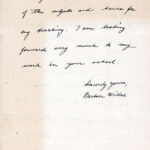 of the subjects and hours for
my teaching. I am looking
forward very much to my
work in your school.
Sincerely yours,
Barbara Miller